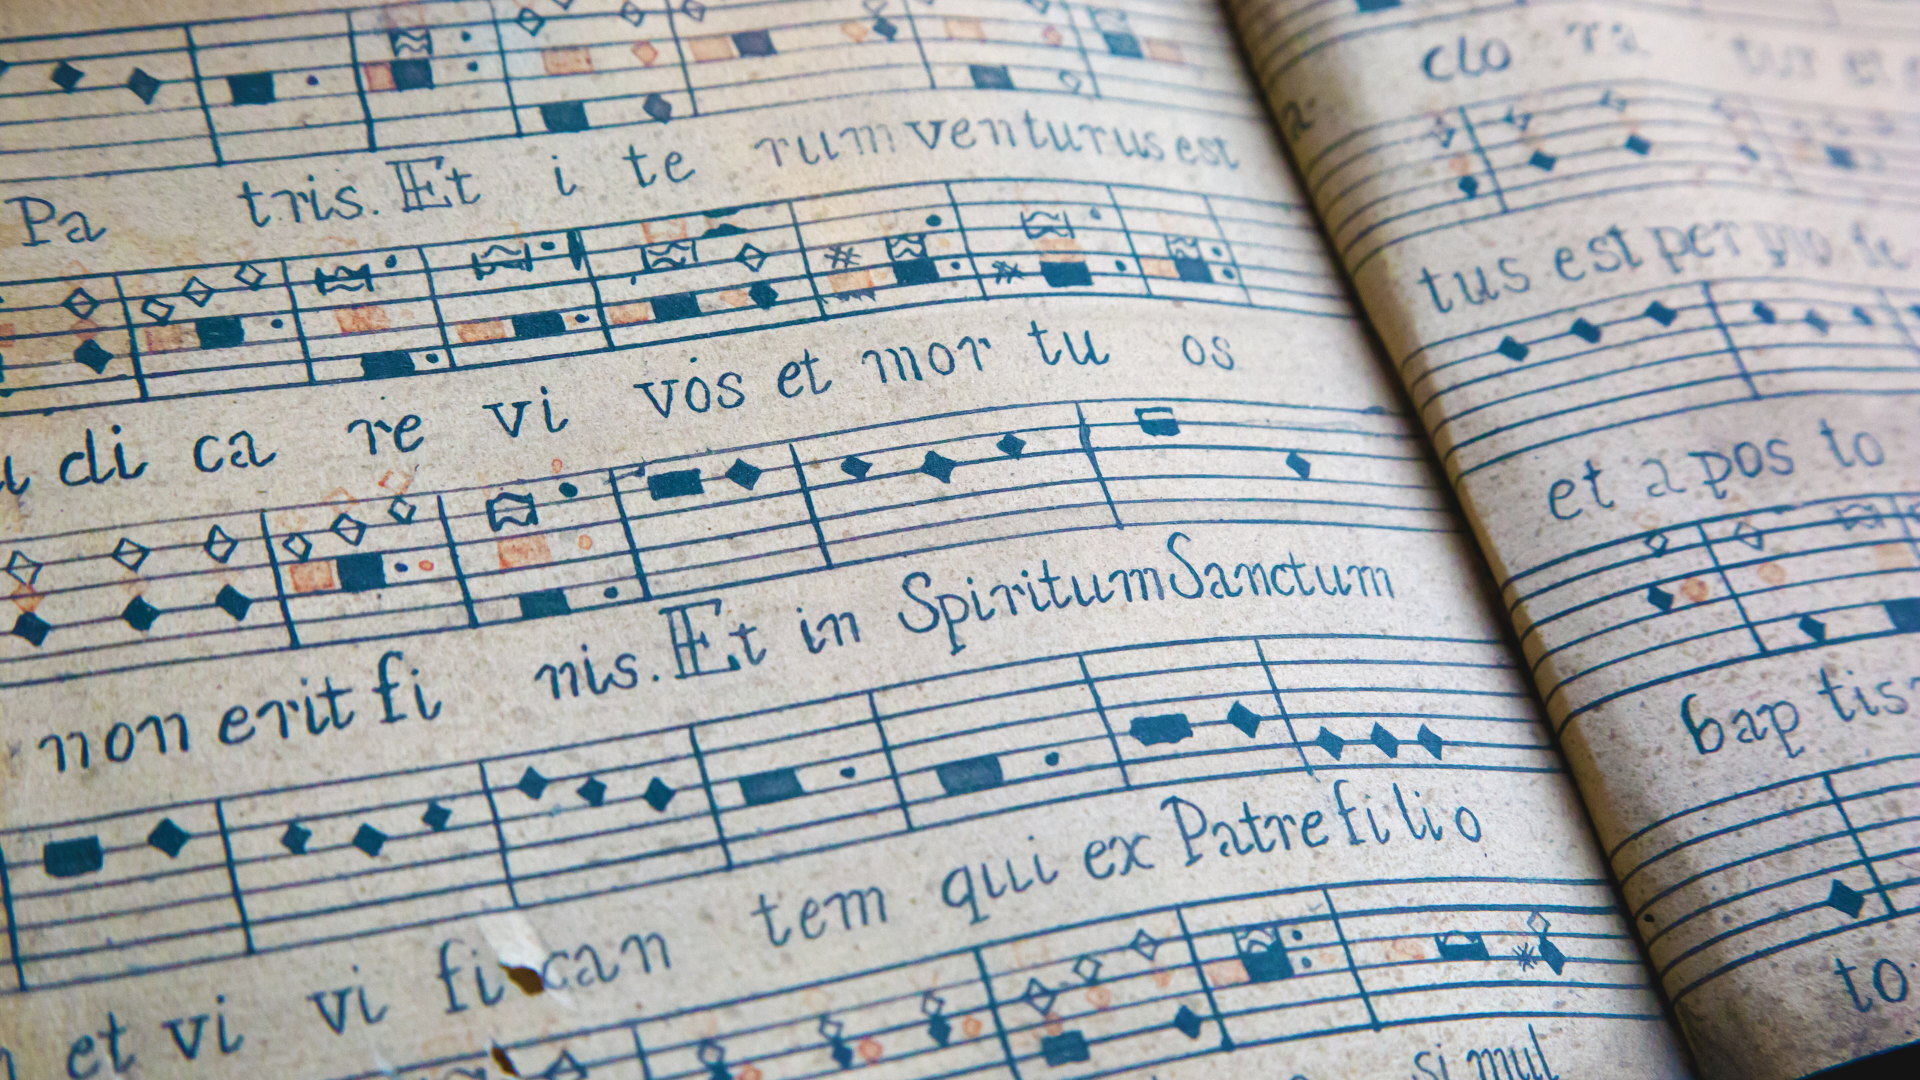 Pa tris. Et i te rum venturus est
di ca re vi vos et mor tu os
non erit fi nis. Et in Spiritum Sanctum
et vi vi fi can tem qui ex Patre fi li o
si mul
clo
tus est per
et a pos to
bap tis
to